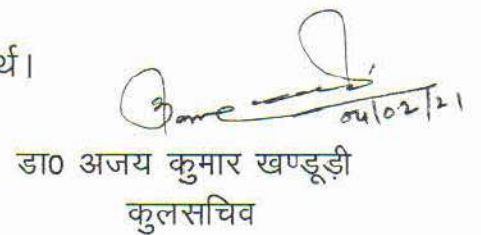 र्थ।
04/02/21
डा0 अजय कुमार खण्डूड़ी
कुलसचिव